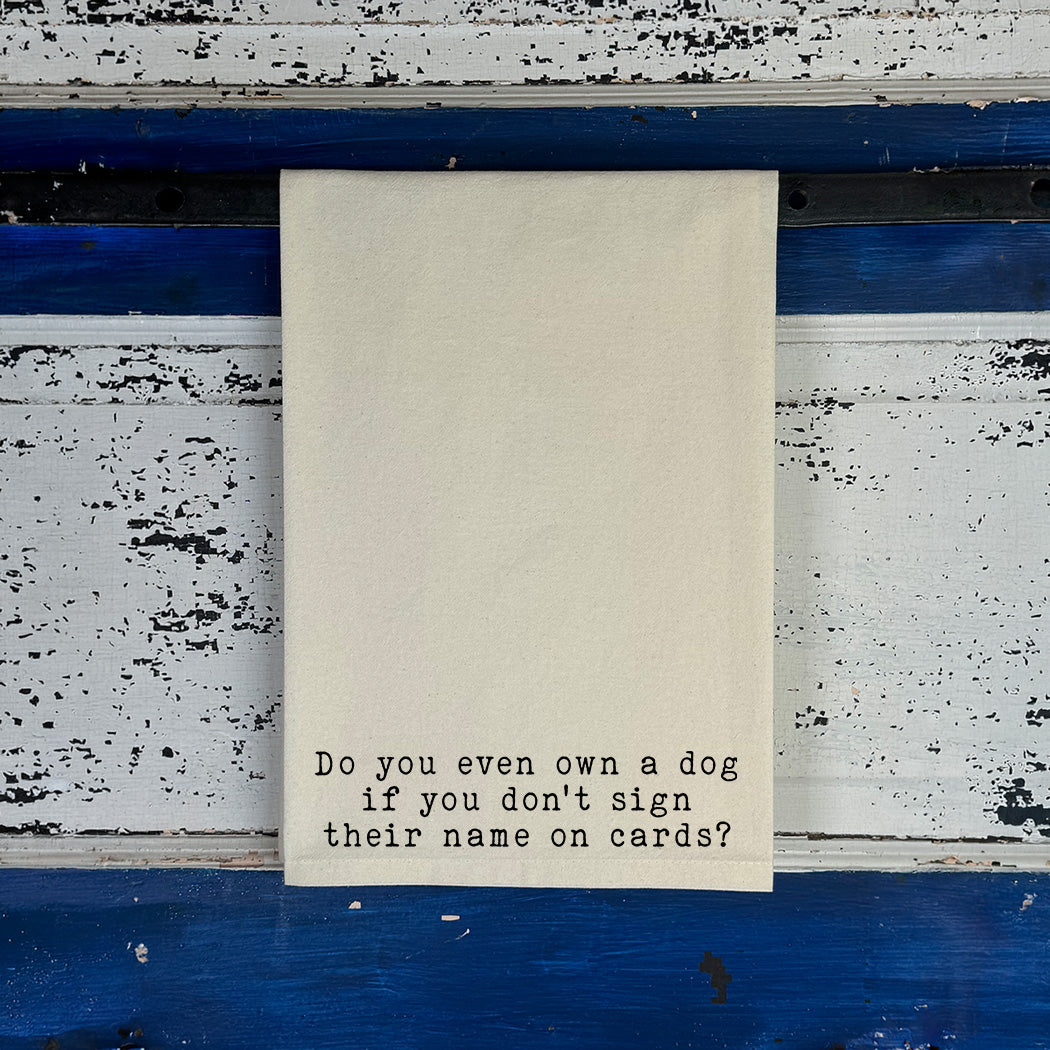 Do you even own a dog
if you don't sign
their name on cards?